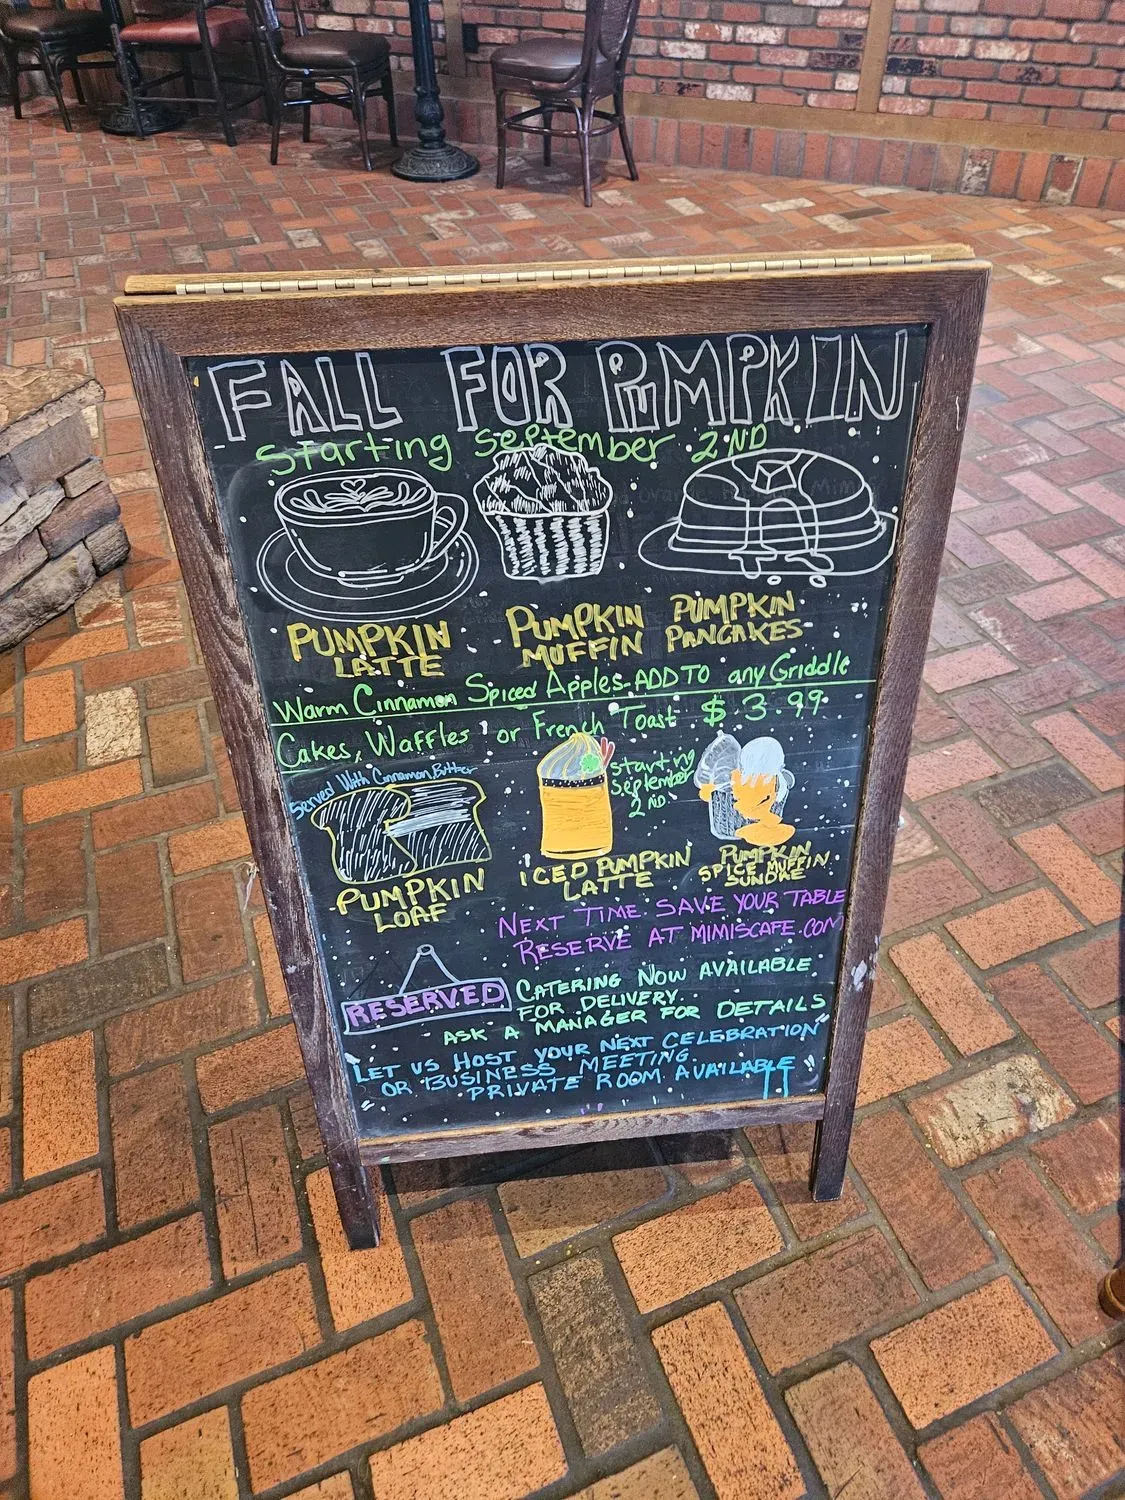 FALL FOR PUMPKIN
Starting September 2ND
PUMPKIN
LATTE
PUMPKIN
MUFFIN
PUMPKIN
PANCAKES
Warm Cinnamon Spiced Apples-ADD TO any Griddle
Cakes, Waffles or French Toast $3.99
Served With Cinnamon Butter
PUMPKIN
LOAF
starting
September
2ND
ICED PUMPKIN
LATTE
PUMPKIN
SPICE MUFFIN
SUNDAE
NEXT TIME SAVE YOUR TABLE
RESERVE AT MIMISCAFE.COM
RESERVED
CATERING NOW AVAILABLE
FOR DELIVERY.
ASK A MANAGER FOR DETAILS
LET US HOST YOUR NEXT CELEBRATION
OR BUSINESS MEETING.
PRIVATE ROOM AVAILABLE